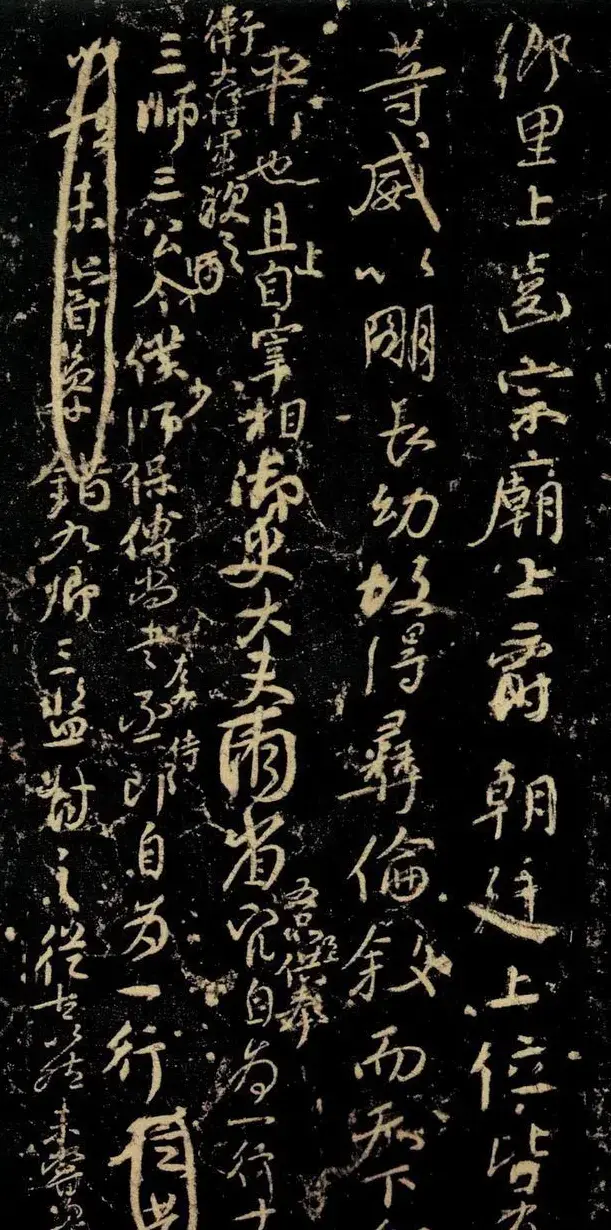 鄉里上齒宗廟上爵朝廷上位皆
等威以明長幼故得彝倫敘而天下
平也且上自宰相御史大夫兩省五品以上供奉官自為一行十
衛大將軍次之
三師三公令僕少師保傅尚書左右丞侍郎自為一行
未嘗參錯九卿三監對之從古以然未嘗參